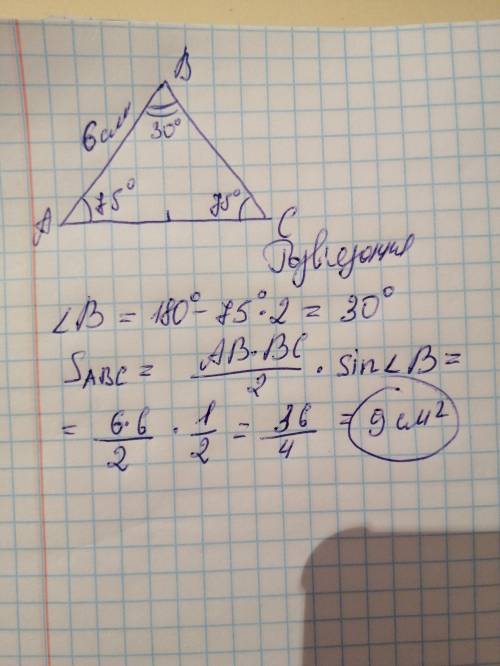 B
6 см
30°
A 75° 75° C
Розв'язання
∠B = 180° - 75° · 2 = 30°
S_ABC = AB·BC/2 · sin∠B =
= 6·6/2 · 1/2 = 36/4 = 9 см²